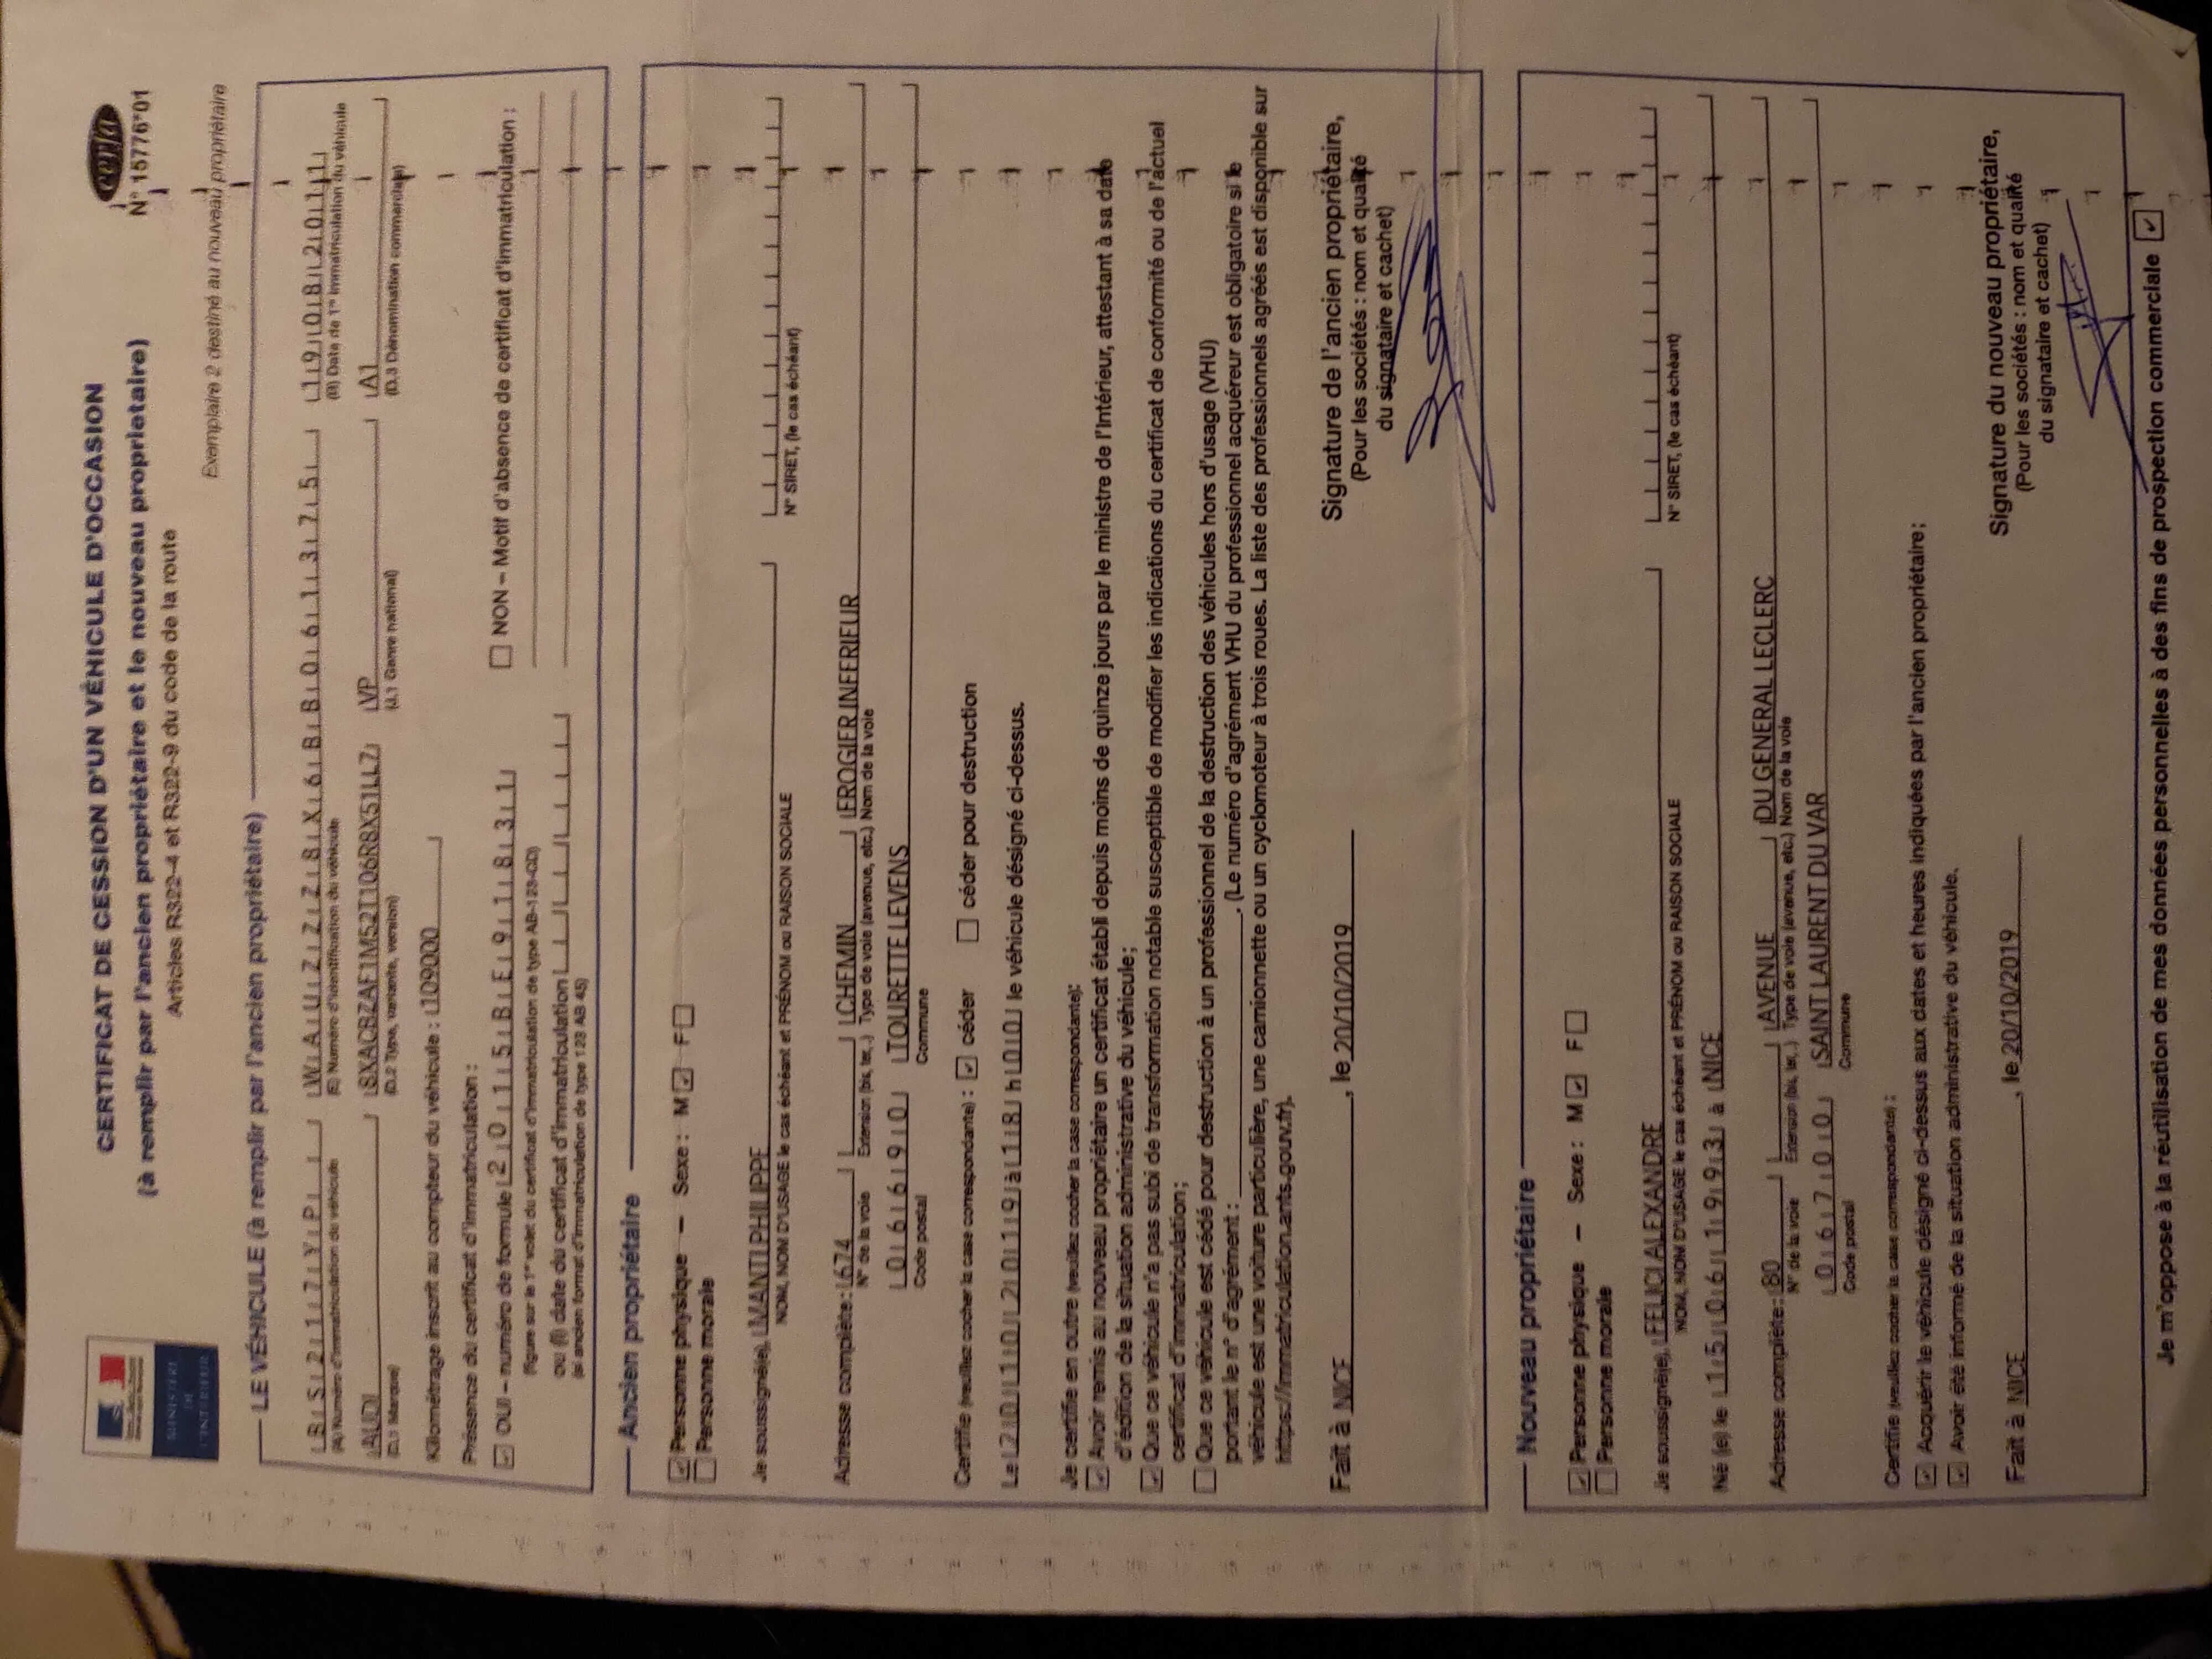 MINISTÈRE
DE
L'INTÉRIEUR
cerfa
N° 15776*01
CERTIFICAT DE CESSION D'UN VÉHICULE D'OCCASION
(à remplir par l'ancien propriétaire et le nouveau propriétaire)
Articles R322-4 et R322-9 du code de la route
Exemplaire 2 destiné au nouveau propriétaire
LE VÉHICULE (à remplir par l'ancien propriétaire)
BS217YP WAUZZZ8X6BB061375 19082011
(A) Numéro d'immatriculation du véhicule (E) Numéro d'identification du véhicule (B) Date de 1re immatriculation du véhicule
AUDI VP A1
(D.1 Marque) (D.2 Type, variante, version) (J.1 Genre national) (D.3 Dénomination commerciale)
Kilométrage inscrit au compteur du véhicule : 109000
Présence du certificat d'immatriculation :
OUI – numéro de formule 2015BE91831 NON – Motif d'absence de certificat d'immatriculation :
(figure sur le 1er volet du certificat d'immatriculation de type AB-123-CD)
ou (I) date du certificat d'immatriculation
(si ancien format d'immatriculation de type 123 AB 45)
Ancien propriétaire
Personne physique – Sexe : M F
Personne morale
Je soussigné(e), MANTI PHILIPPE
NOM, NOM D'USAGE le cas échéant et PRÉNOM ou RAISON SOCIALE N° SIRET, (le cas échéant)
Adresse complète : 674 CHEMIN FROGIER INFERIEUR
N° de la voie Extension (bis, ter, .) Type de voie (avenue, etc.) Nom de la voie
06690 TOURETTE LEVENS
Code postal Commune
Certifie (veuillez cocher la case correspondante) : céder céder pour destruction
Le 20102019 à 18 h 00 le véhicule désigné ci-dessus.
Je certifie en outre (veuillez cocher la case correspondante):
Avoir remis au nouveau propriétaire un certificat établi depuis moins de quinze jours par le ministre de l'Intérieur, attestant à sa date
d'édition de la situation administrative du véhicule ;
Que ce véhicule n'a pas subi de transformation notable susceptible de modifier les indications du certificat de conformité ou de l'actuel
certificat d'immatriculation ;
Que ce véhicule est cédé pour destruction à un professionnel de la destruction des véhicules hors d'usage (VHU)
portant le n° d'agrément : . (Le numéro d'agrément VHU du professionnel acquéreur est obligatoire si le
véhicule est une voiture particulière, une camionnette ou un cyclomoteur à trois roues. La liste des professionnels agréés est disponible sur
https://immatriculation.ants.gouv.fr).
Fait à NICE , le 20/10/2019
Signature de l'ancien propriétaire,
(Pour les sociétés : nom et qualité
du signataire et cachet)
Nouveau propriétaire
Personne physique – Sexe : M F
Personne morale
Je soussigné(e), FELICI ALEXANDRE
NOM, NOM D'USAGE le cas échéant et PRÉNOM ou RAISON SOCIALE N° SIRET, (le cas échéant)
Né (e) le 15061993 à NICE
Adresse complète : 80 AVENUE DU GENERAL LECLERC
N° de la voie Extension (bis, ter, .) Type de voie (avenue, etc.) Nom de la voie
06700 SAINT LAURENT DU VAR
Code postal Commune
Certifie (veuillez cocher la case correspondante) :
Acquérir le véhicule désigné ci-dessus aux dates et heures indiquées par l'ancien propriétaire ;
Avoir été informé de la situation administrative du véhicule.
Fait à NICE , le 20/10/2019
Signature du nouveau propriétaire,
(Pour les sociétés : nom et qualité
du signataire et cachet)
Je m'oppose à la réutilisation de mes données personnelles à des fins de prospection commerciale